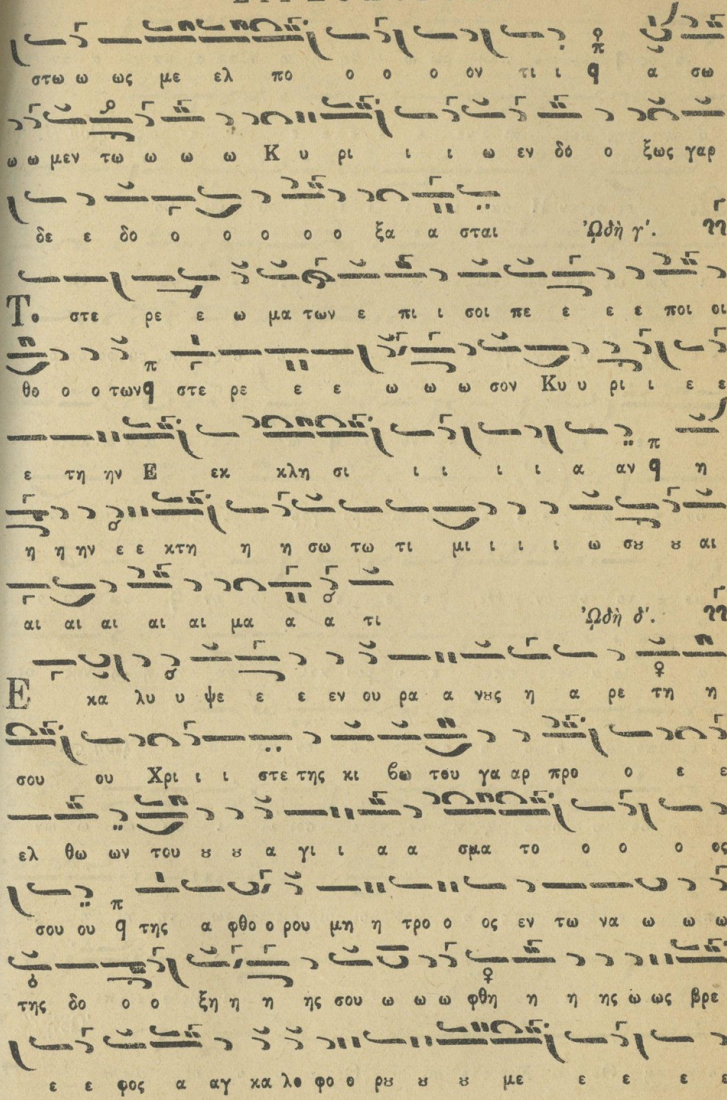 στω ω ως με ελ πο ο ο ο ον τι ι ϥ α σω
ω ω μεν τω ω ω ω Κ υ ρι ι ι ω εν δο ο ξως γαρ
δε ε δο ο ο ο ο ο ξα α σται Ὠδὴ γʹ.
Το στε ρε ε ω μα των ε πι ι σοι πε ε ε ε ποι οι
θο ο ο των ϥ στε ρε ε ε ω ω ω σον Κυ υ ρι ι ε ε
ε τη ην Ε εκ κλη σι ι ι ι ι α αν ϥ η
η η ην ε ε κτη η η σω τω τι μι ι ι ι ω σȣ ȣ αι
αι αι αι αι αι μα α α τι Ὠδὴ δʹ.
Ε κα λυ υ ψε ε ε εν ου ρα α νȣς η α ρε τη η
σου ου Χρι ι ι στε της κι βω του γα αρ προ ο ε ε
ελ θω ων του ȣ ȣ α γι ι α α σμα το ο ο ο ος
σου ου ϥ της α φθο ο ρου μη η τρο ο ος εν τω να ω ω ω
της δο ο ο ξη η η ης σου ω ω ω φθη η η ης ω ως βρε
ε ε φος α αγ κα λο φο ο ρȣ ȣ ȣ ȣ με ε ε ε